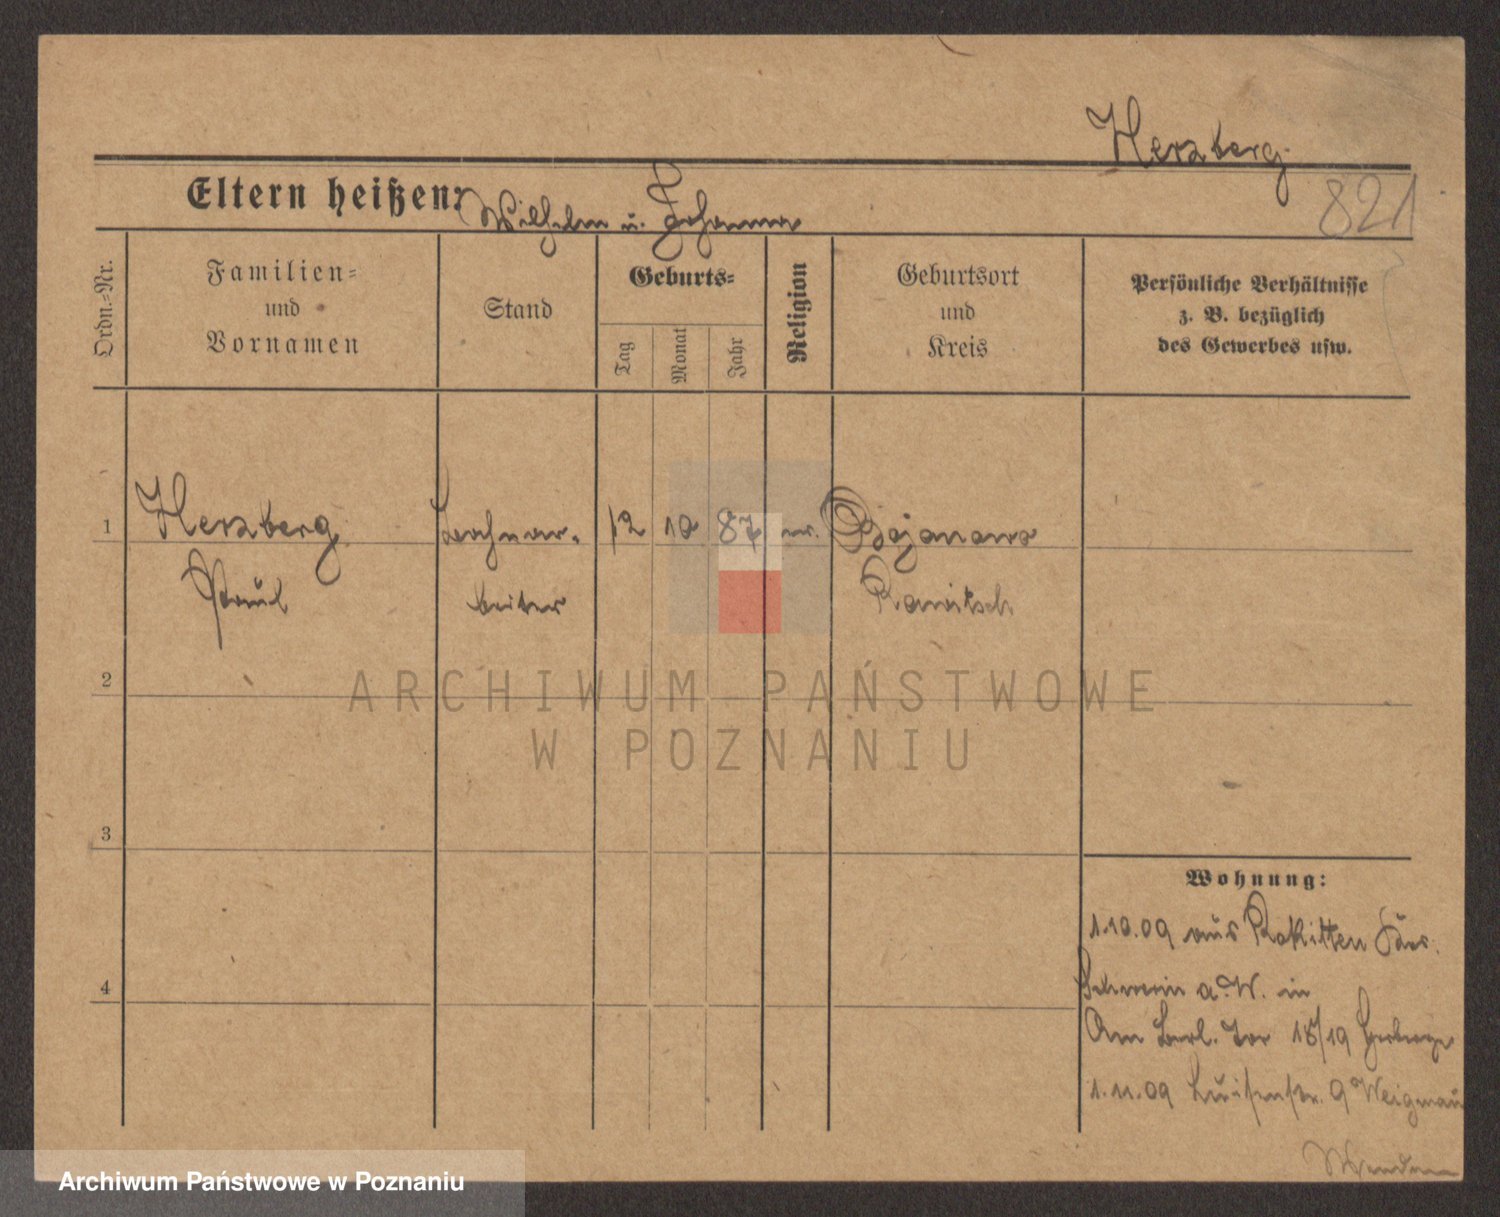 Herzberg
Eltern heißen: Wilhelm u. Johanna
821
Ordn.=Nr.
Familien=
und
Vornamen
Stand
Geburts=
Tag
Monat
Jahr
Religion
Geburtsort
und
Kreis
Persönliche Verhältnisse
z. B. bezüglich
des Gewerbes usw.
1 Herzberg 12 10 87 ev. Bojanowo
Paul beiter Rawitsch
2
3
4
Wohnung:
1.10.09 aus Rokitten Krs.
Schwerin a. W. in
Am Berl. Tor 18/19 Herberge
1.11.09 Luisenstr. 9 Weigmann
Wenden
ARCHIWUM PAŃSTWOWE
W POZNANIU
Archiwum Państwowe w Poznaniu